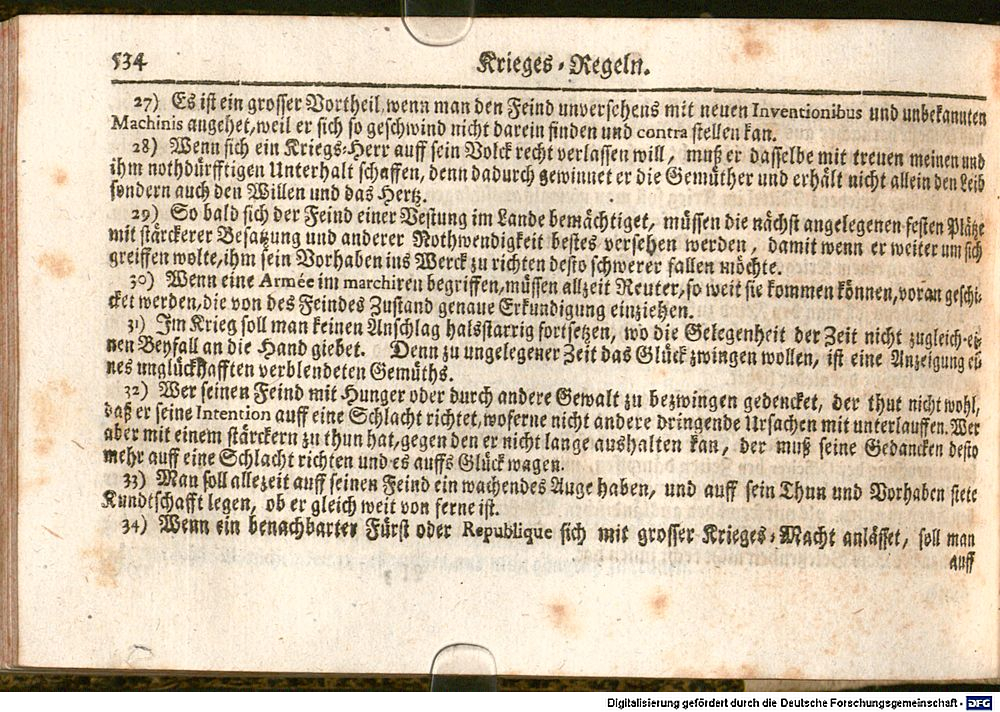 534 Krieges-Regeln.
27) Es ist ein grosser Vortheil wenn man den Feind unversehens mit neuen Inventionibus und unbekannten
Machinis angehet, weil er sich so geschwind nicht darein finden und contra stellen kan.
28) Wenn sich ein Kriegs-Herr auff sein Volck recht verlassen will, muß er dasselbe mit treuen meinen und
ihm nothdürfftigen Unterhalt schaffen, denn dadurch gewinnet er die Gemüther und erhält nicht allein den Leib
sondern auch den Willen und das Hertz.
29) So bald sich der Feind einer Vestung im Lande bemächtiget, müssen die nächst angelegenen festen Plätze
mit stärckerer Besatzung und anderer Nothwendigkeit bestes versehen werden, damit wenn er weiter um sich
greiffen wolte, ihm sein Vorhaben ins Werck zu richten desto schwerer fallen möchte.
30) Wenn eine Armée im marchiren begriffen, müssen allzeit Reuter, so weit sie kommen können, voran geschi-
cket werden, die von des Feindes Zustand genaue Erkundigung einziehen.
31) Im Krieg soll man keinen Anschlag halsstarrig fortsetzen, wo die Gelegenheit der Zeit nicht zugleich ei-
nen Beyfall an die Hand giebet. Denn zu ungelegener Zeit das Glück zwingen wollen, ist eine Anzeigung ei-
nes unglückhafften verblendeten Gemüths.
32) Wer seinen Feind mit Hunger oder durch andere Gewalt zu bezwingen gedencket, der thut nicht wohl,
daß er seine Intention auff eine Schlacht richtet, woferne nicht andere dringende Ursachen mit unterlauffen. Wer
aber mit einem stärckern zu thun hat, gegen den er nicht lange aushalten kan, der muß seine Gedancken desto
mehr auff eine Schlacht richten und es auffs Glück wagen.
33) Man soll allezeit auff seinen Feind ein wachendes Auge haben, und auff sein Thun und Vorhaben stete
Kundtschafft legen, ob er gleich weit von ferne ist.
34) Wenn ein benachbarter Fürst oder Republique sich mit grosser Krieges-Macht anlässet, soll man
auff
Digitalisierung gefördert durch die Deutsche Forschungsgemeinschaft - DFG